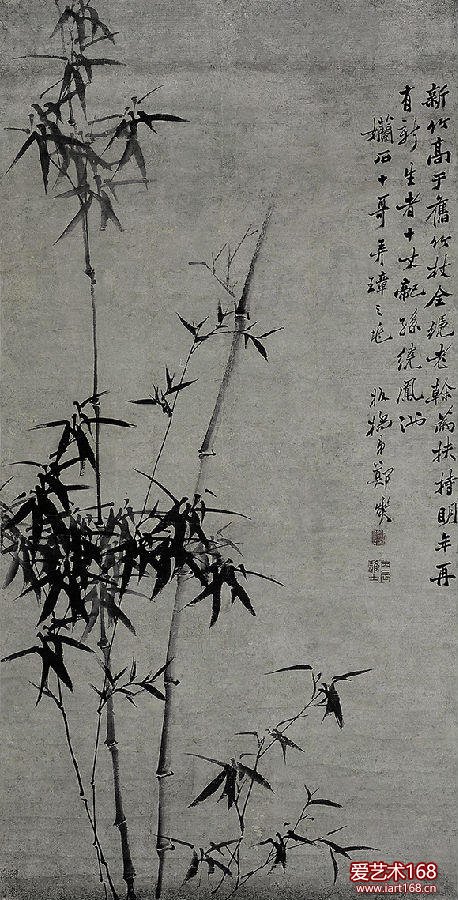 新竹高于舊竹枝全憑老幹為扶持明年再
有新生者十丈龍孫繞鳳池
嬾石十哥弄璋之兆 板橋弟鄭燮
爱艺术168
www.iart168.com